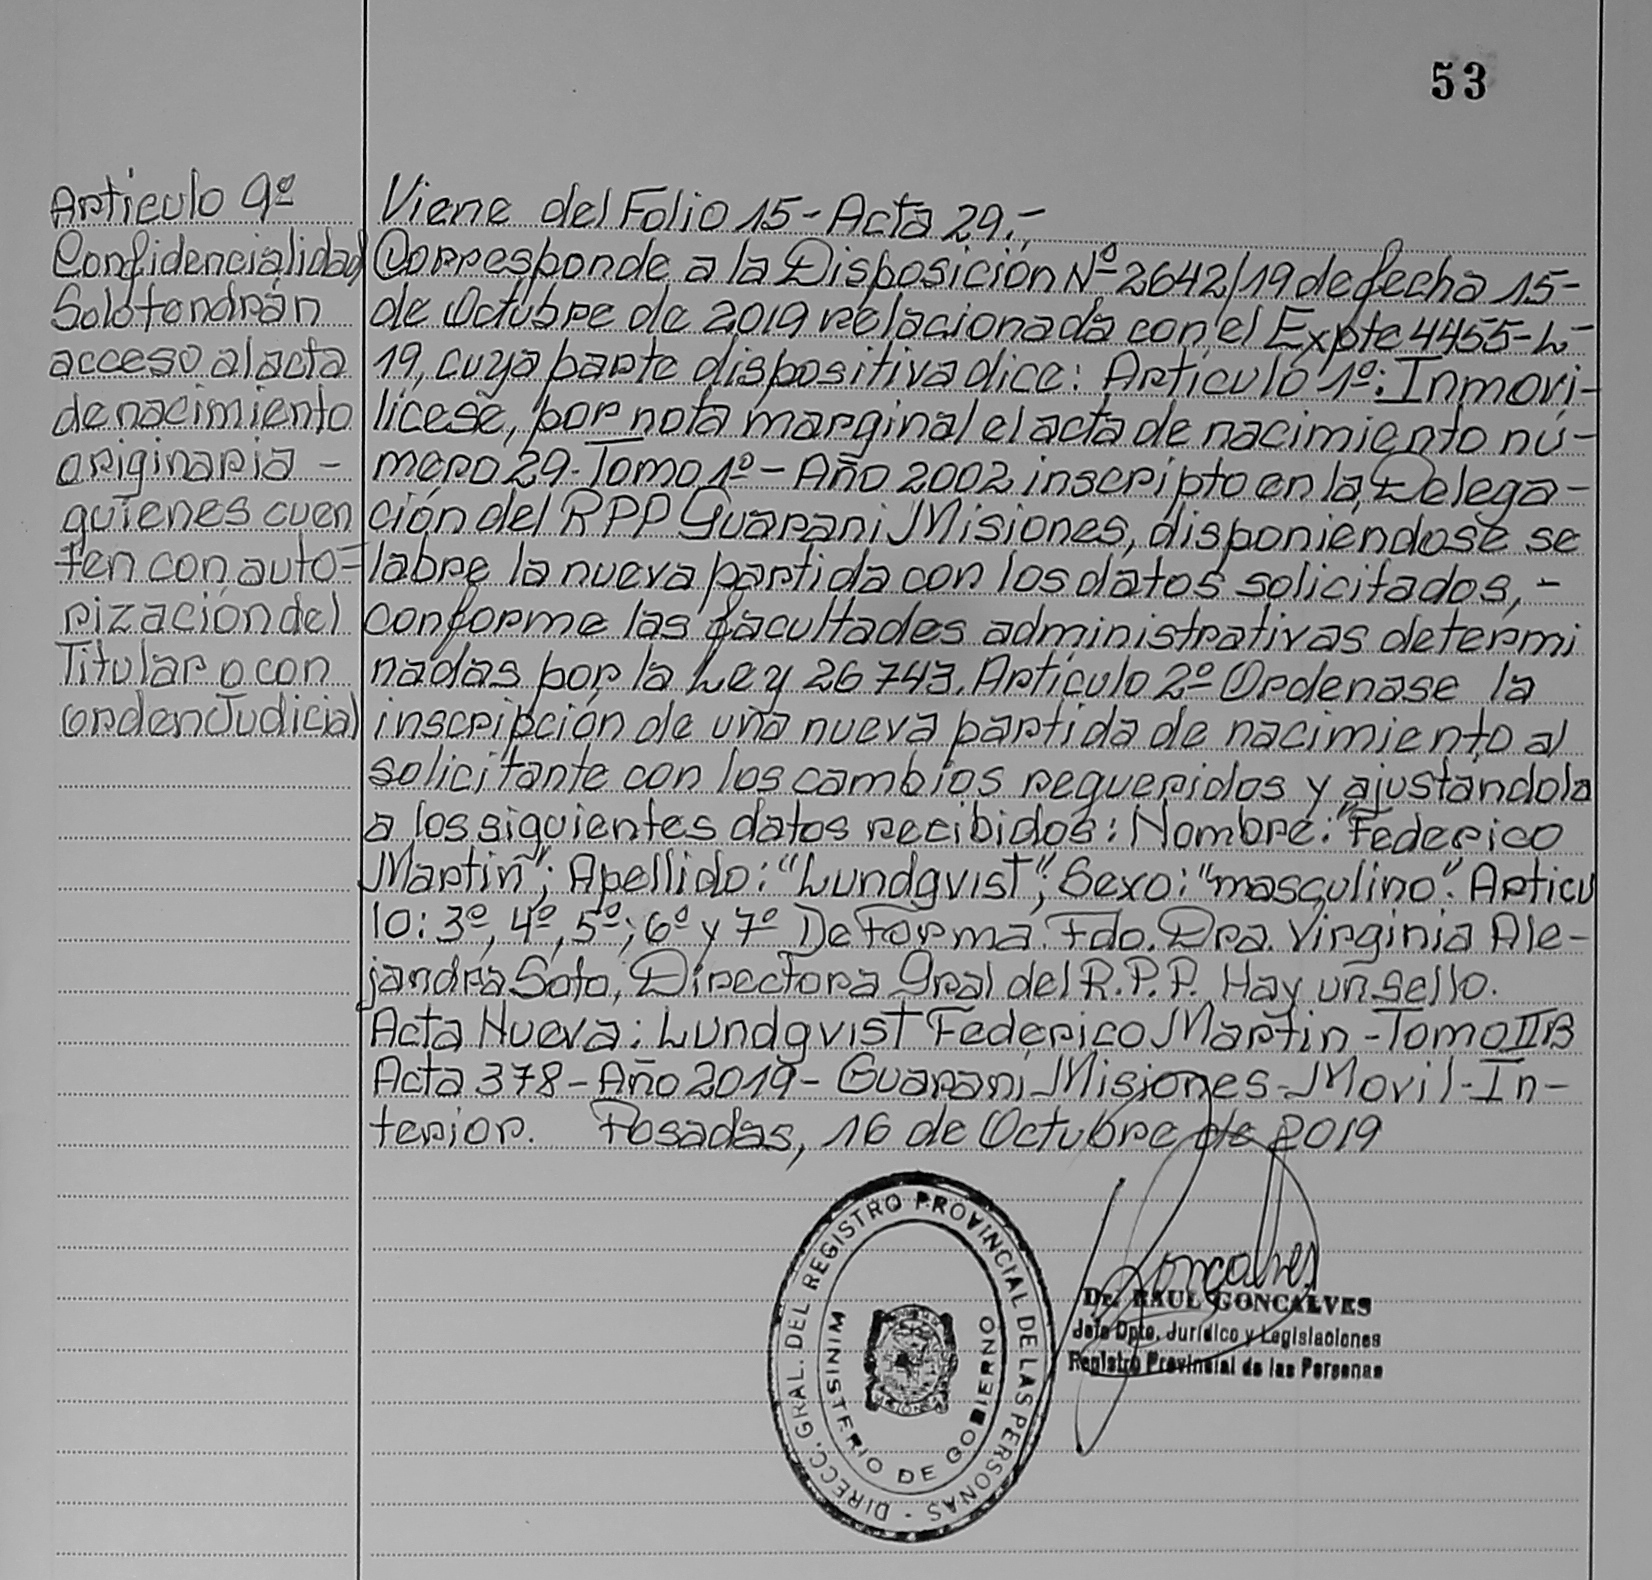 53
Articulo 9º
Confidencialidad
Solo tendrán
acceso al acta
de nacimiento
originaria -
quienes cuen
ten con auto-
rización del
Titular o con
orden Judicial
Viene del Folio 15 - Acta 29.-
Corresponde a la Disposición Nº 2642/19 de fecha 15-
de Octubre de 2019 relacionada con el Expte 4455-L-
19, cuya parte dispositiva dice: Articulo 1º: Inmovi-
licese, por nota marginal el acta de nacimiento nú-
mero 29- Tomo 1º - Año 2002 inscripto en la, Delega-
ción del RPP Guarani Misiones, disponiendose se
labre la nueva partida con los datos solicitados, -
conforme las facultades administrativas determi
nadas por la Ley 26743. Artículo 2º Ordenase la
inscripción de una nueva partida de nacimiento al
solicitante con los cambios requeridos y ajustándola
a los siguientes datos recibidos: Nombre: "Federico
Martin"; Apellido: "Lundqvist"; Sexo: "masculino". Articu
lo: 3º, 4º, 5º; 6º y 7º De Forma. Fdo. Dra. Virginia Ale-
jandra Soto, Directora Gral del R.P.P. Hay un sello.
Acta Nueva: Lundqvist Federico Martin - Tomo II B
Acta 378 - Año 2019 - Guarani Misiones - Movil - In-
terior. Posadas, 16 de Octubre de 2019
DIRECC. GRAL. DEL REGISTRO PROVINCIAL DE LAS PERSONAS -
MINISTERIO DE GOBIERNO
Goncalves
Dr. RAUL GONCALVES
Jefe Dpto. Jurídico y Legislaciones
Registro Provincial de las Personas